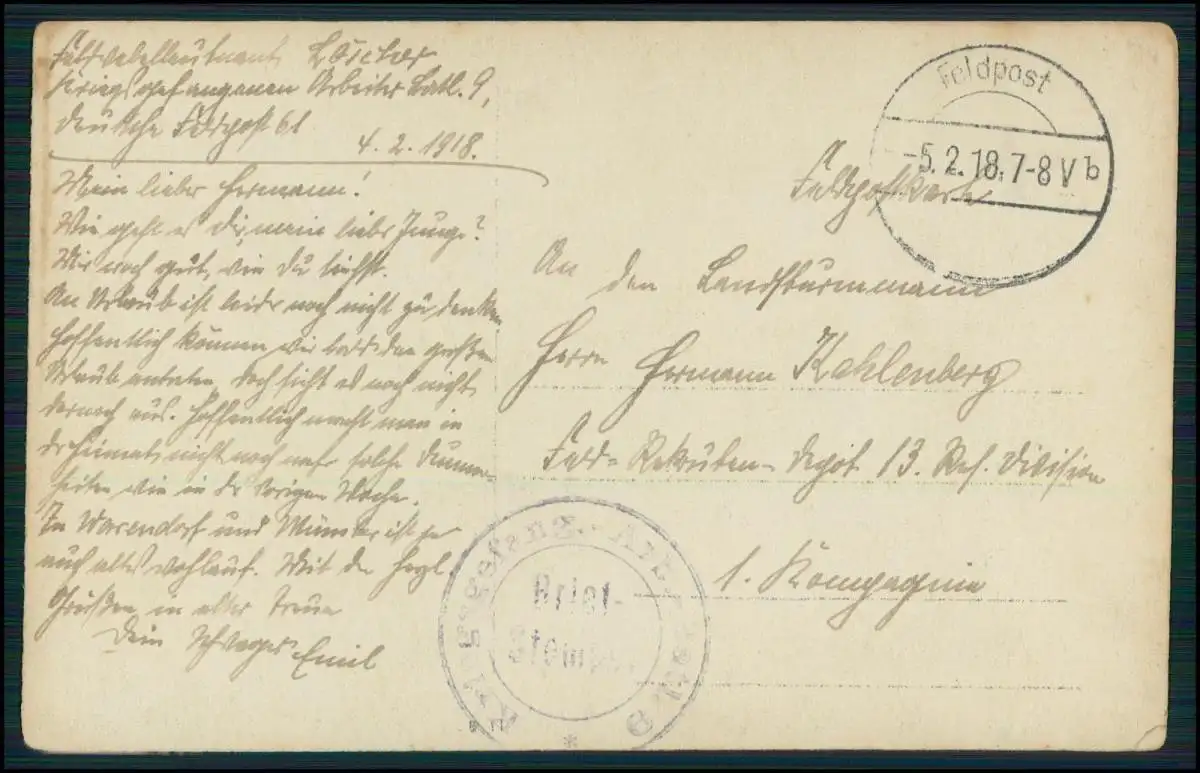 Feldwebelleutnant Löscher
Kriegsgefangenen Arbeiter Batl. 9,
Deutsche Feldpost 61
4. 2. 1918.
Mein lieber Hermann!
Wie geht es Dir, mein lieber Junge?
Mir noch gut, wie Du siehst.
An Urlaub ist leider noch nicht zu denken
hoffentlich können wir bald den großen
Urlaub antreten, doch sieht es noch nicht
darnach aus. Hoffentlich macht man in
der Heimat nicht noch mehr solche Dumm-
heiten wie in der vorigen Woche.
In Warendorf und Münster ist ja
auch alles wohlauf. Mit den herzl.
Grüßen in alter Treue
Dein Schwager Emil
Feldpost
-5.2.18.7-8V b
Feldpostkarte
An
den Landsturmmann
Herrn Hermann Kahlenberg
Feld=Rekruten-depot 13. Res. Division
1. Kompagnie
Kriegsgefang.-Arb. Batl. 9
Brief-
stempel